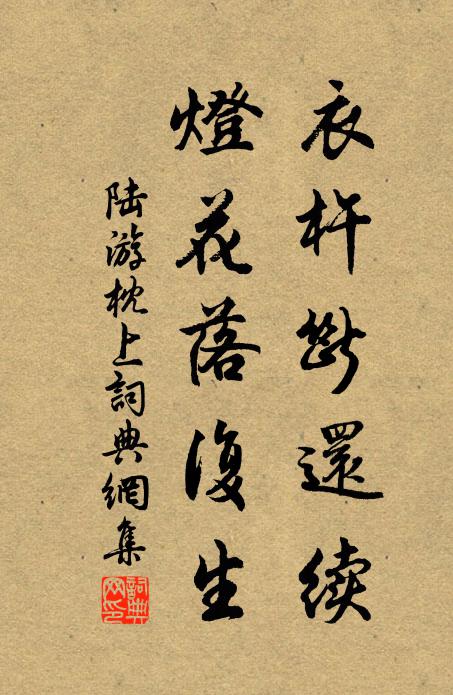 衣杵斷還續
燈花落復生
陆游枕上詞典網集
詞典網印